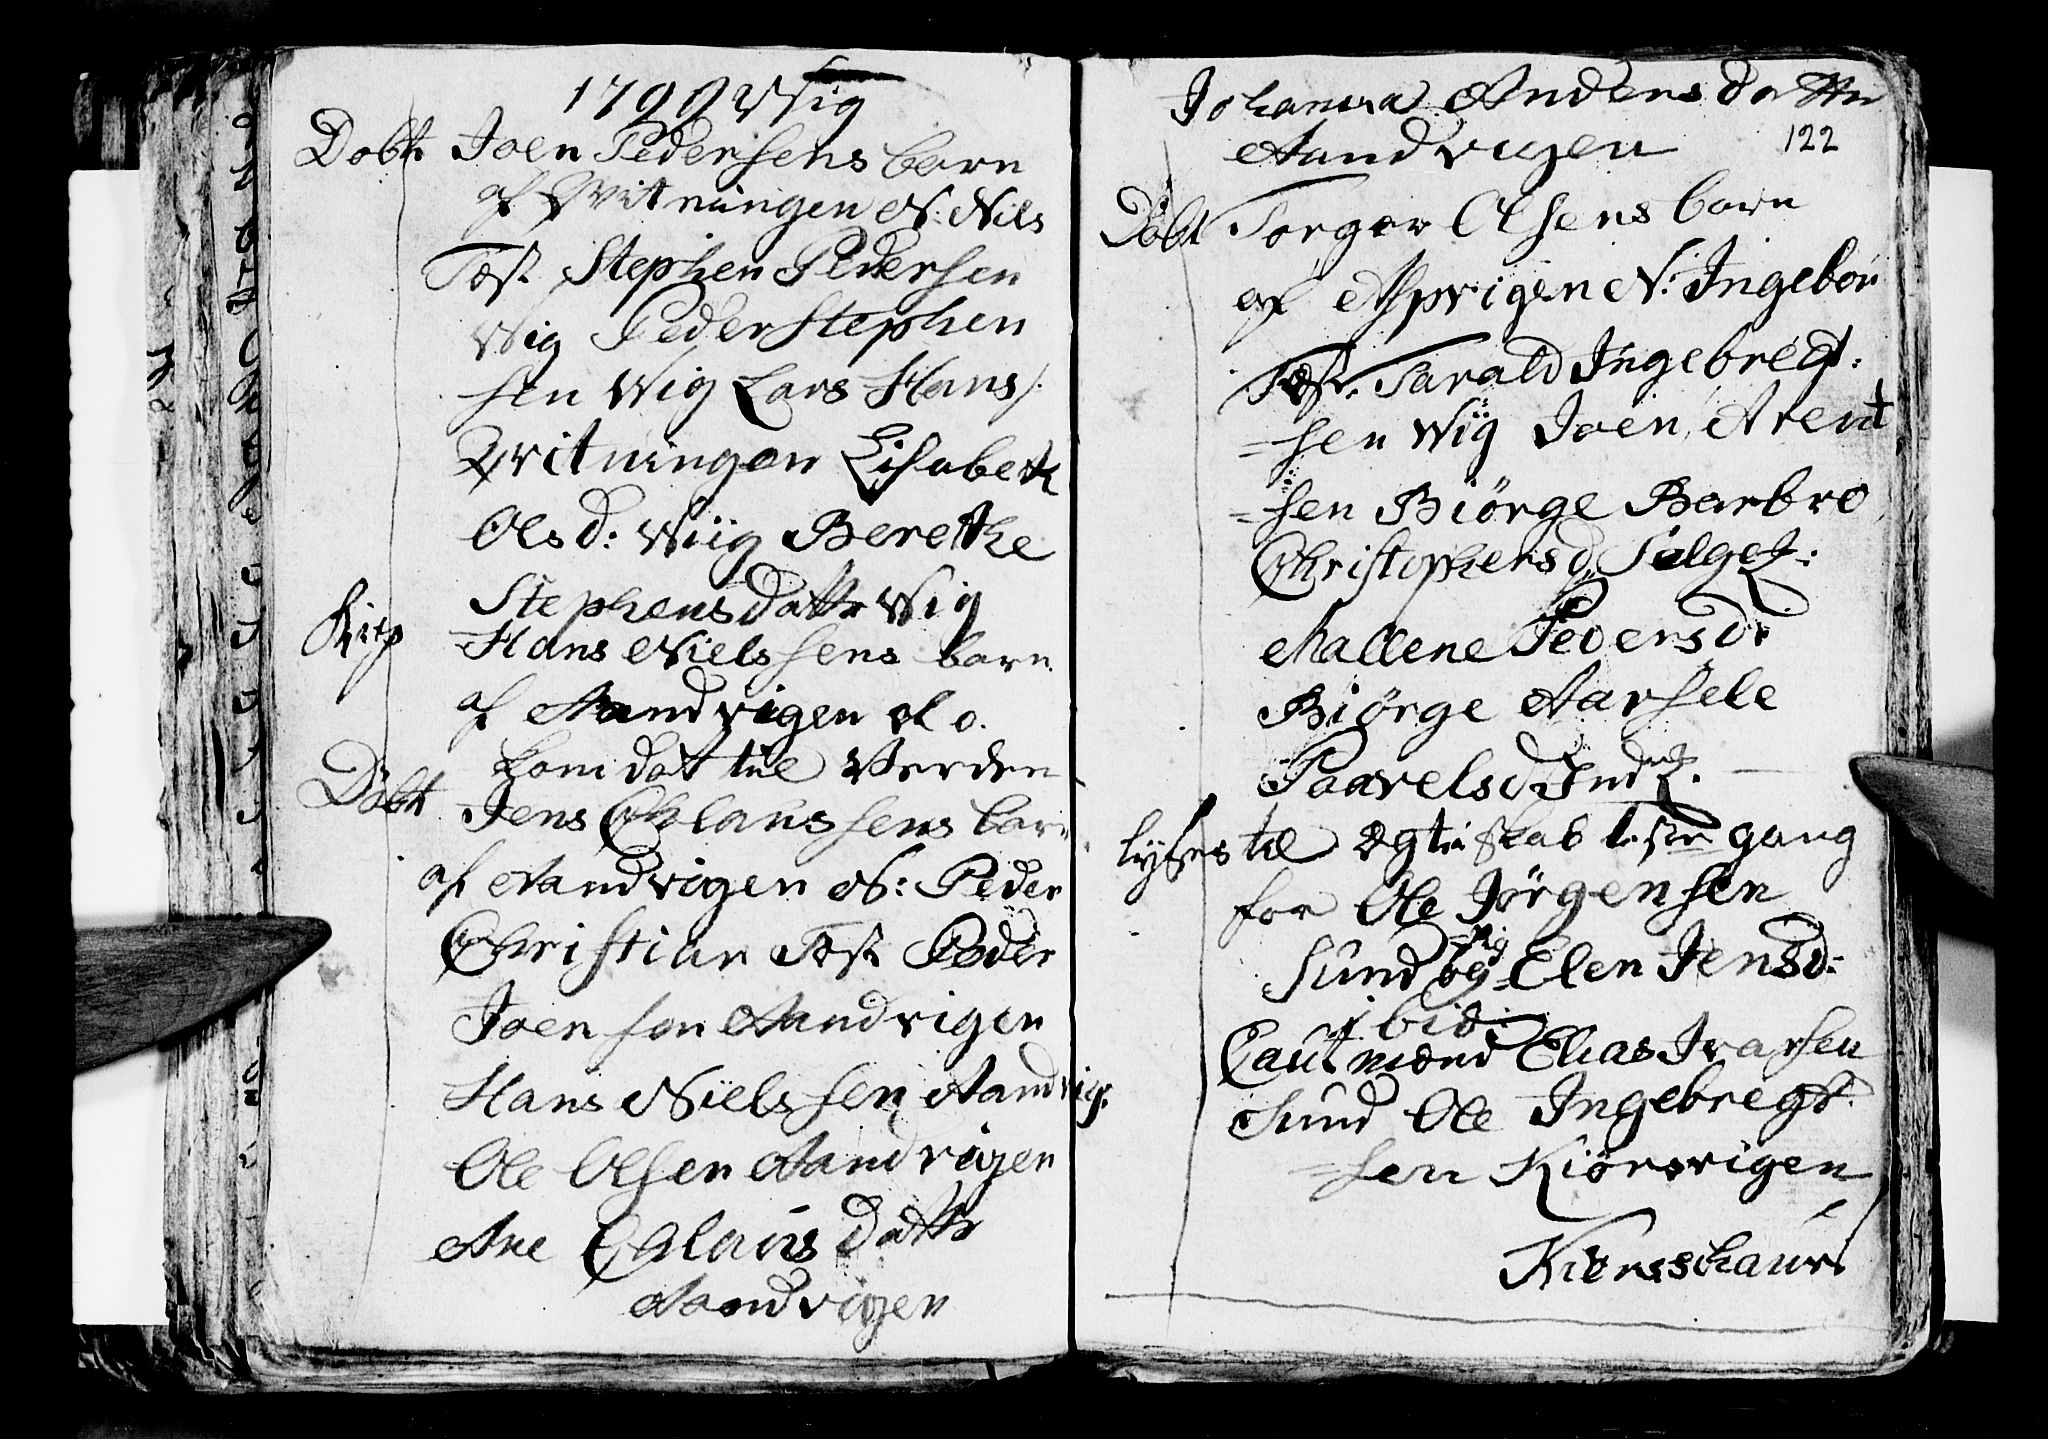 1799 Wig
Døbt Joen Pedersens barn
af Qvitningen N: Nils
Test Stephen Pedersen
Wig Peder Stephen
sen Wig Lars Hans/:
Qvitningen Lisabeth
Olsd: Wiig Berethe
Stephensdattr Wig
Hans Nielssens barn
af Aandvigen
dat til Verden
Døbt Jens Chlaussens barn
af Aandvigen N: Peder
Christian Test Peder
Joensen Aandvigen
Hans Nielssen Aandvig:
Ole Olsen Aandvigen
Ane Chlausdattr
Aandvigen
Johanna Andersdatter
Aandvigen
122
Døbt Torger Olsens barn
af Asprigen N: Ingebor
Test. Tarald Ingebregt:
=sen Wiig Joen Arent
=sen Biørge Barbro
Christophersd
Mallene Pedersdr
Biørge Aarsele
Paavelsd
lyses til Ægteskab 1ste gang
for Ole Jørgensen
Sund og Pig Elen Jensd:
ibid:
Cautmænd Elias Ivarsen
Sund Ole Ingebregt
=sen Kiørsvigen
Kiørsschaur